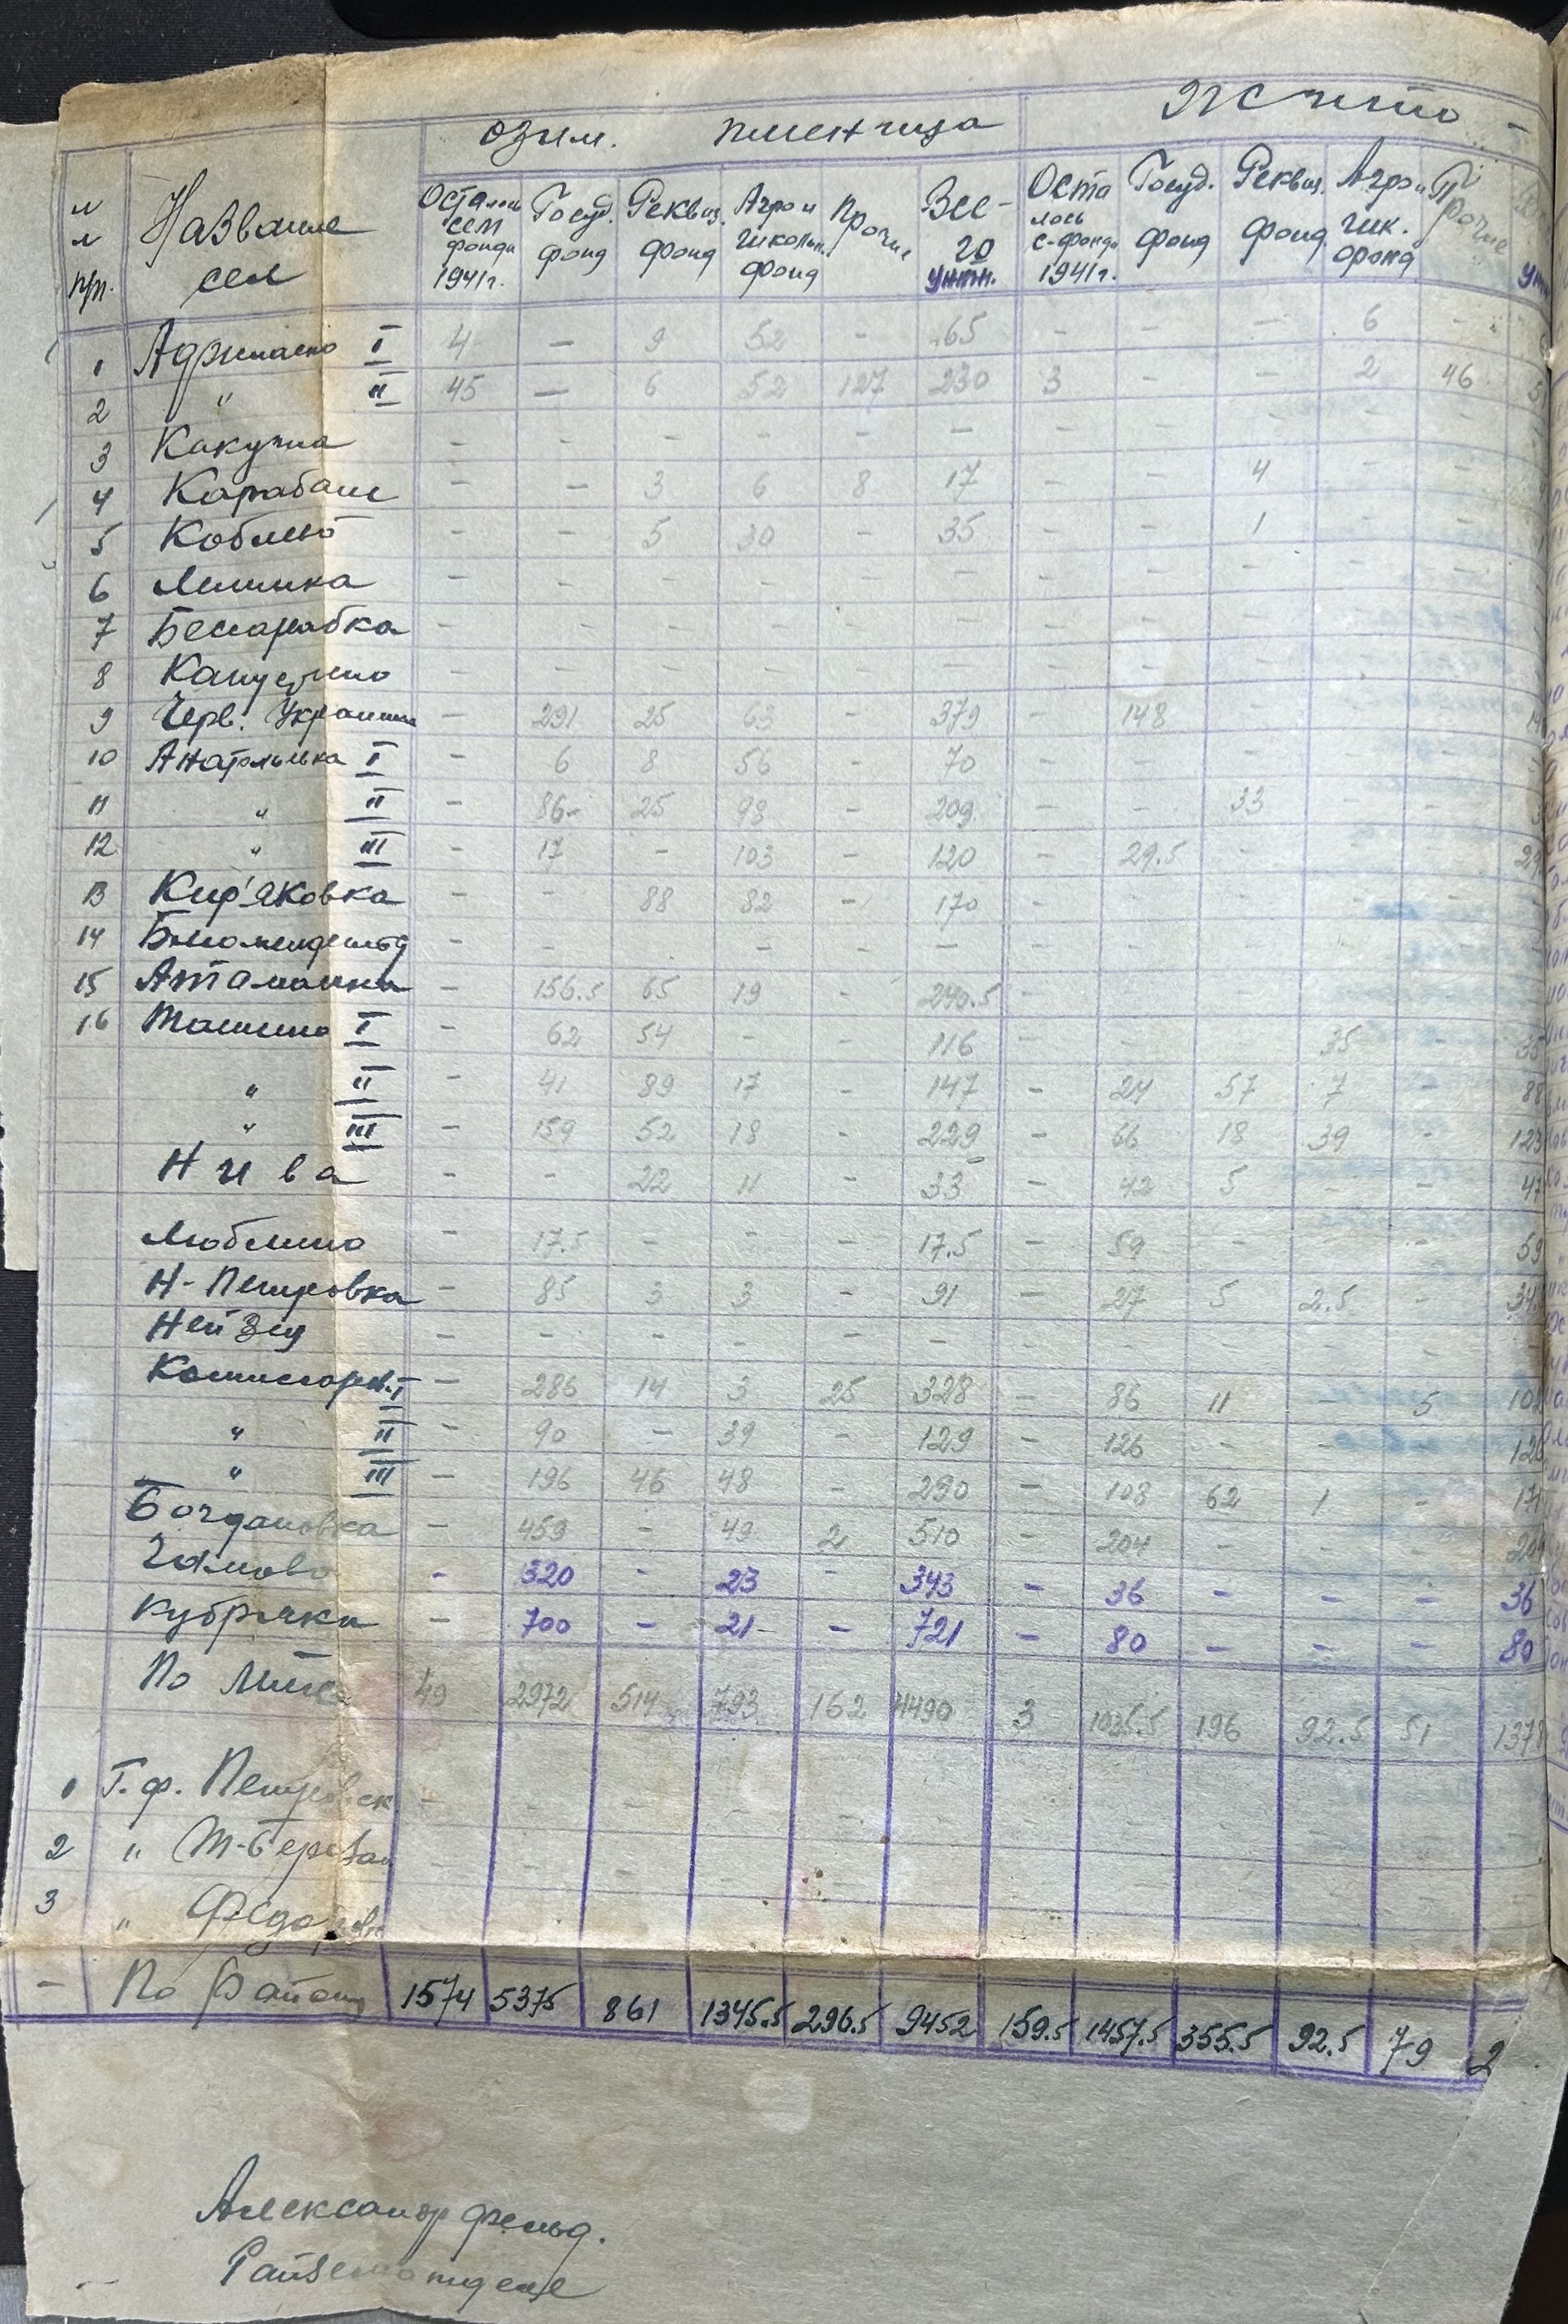 озим. пшеница Жито
п/п. Название сел Осталось сем фонда 1941г. Госуд. фонд Реквиз. фонд Агро и школьн. фонд Прочие Всего Оста лось с-фонда 1941г. Госуд. фонд Реквиз. фонд Агро и шк. фонд Прочие
1 I 4 — 9 52 - 65 - - - 6 -
2 " II 45 — 6 52 127 230 3 - - 2 46
3 - - - - - - - - - - -
4 Карабаш - - 3 6 8 17 - - 4 - -
5 Коблево - - 5 30 - 35 - - 1 - -
6 - - - - - - - - - - -
7 Бессарабка - - - - - - - - - - -
8 Капустино - - - - - - - - - - -
9 Черв. Украинка - 291 25 63 - 379 - 148 - - -
10 Анатольевка I - 6 8 56 - 70 - - - - -
11 " II - 86- 25 98 - 209 - - 33 - -
12 " III - 17 - 103 - 120 - 29.5 - - -
13 Кир'яковка - - 88 82 - 170 - - - - -
14 - - - - - - - - - - -
15 Атаманка - 156.5 65 19 - 240.5 -
16 Ташино I - 62 54 - - 116 - - - 35 - 35
" II - 41 89 17 - 147 - 24 57 7 - 88
" III - 159 52 18 - 229 - 66 18 39 - 123
Нива - - 22 11 - 33 - 42 5 - - 47
Люблино - 17.5 - - - 17.5 - 59 - - - 59
Н-Петровка - 85 3 3 - 91 - 27 5 2.5 - 34
Ней Зец - - - - - - - - - - -
Комиссаров. I - 286 14 3 25 328 - 86 11 - 5 102
" II - 90 - 39 - 129 - 126 - - - 126
" III - 196 46 48 - 290 - 108 62 1 - 171
Богдановка - 459 - 49 2 510 - 204 - - - 204
- 320 - 23 - 343 - 36 - - - 36
Кубряки - 700 - 21- - 721 - 80 - - - 80
По 49 2972 514 793 162 4490 3 1035.5 196 92.5 51 1378
1 Г.ф. Петровск - - - - - - - - - - -
2 " Т-Березан - - - - - - - - - - -
3 " Федоровка - - - - - - - - - -
- По Району 1574 5375 861 1345.5 296.5 9452 159.5 1457.5 355.5 92.5 79 2
Александрфельд.